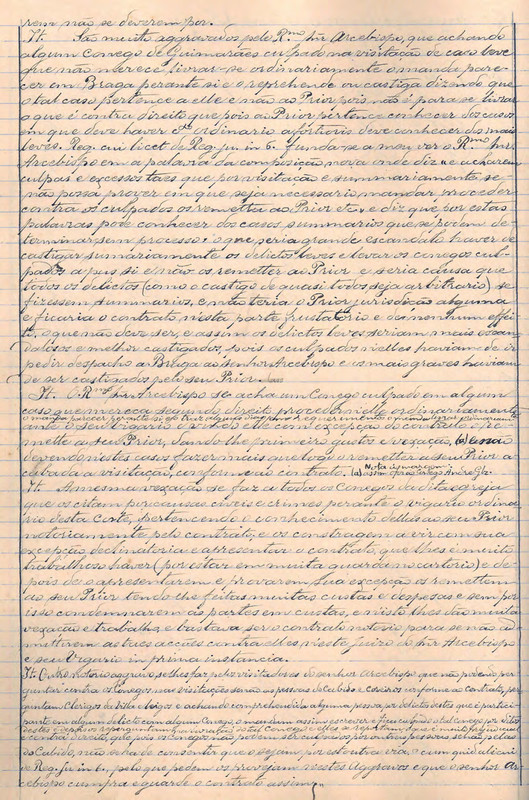 rem não se deverem por.
It. São muito aggravados pelo R.mo Snr. Arcebispo, que achando
algum Conego de Guimarães culpado na visitação de caso leve
que não merece, livrar-se ordinariamente o manda pare-
cer em Braga perante si e o reprehende ou castiga dizendo que
o tal caso pertence a elle e não ao Prior pois não é para se livrar
o que é contra direito que pois ao Prior pertence conhecer dos casos
em que deve haver ordinario a fortioris deve conhecer dos mais
leves. Reg. cui licet de Reg. jur. in 6. funda-se a mover o R.mo Snr.
Arcebispo em a palavra da composição nova onde diz "e acharem
culpas e excessos taes que por visitação e summariamente, se
não possa prover em que seja necessario, mandar proceder
contra os culpados os remetta ao Prior etc. e diz que por estas
palavras pode conhecer dos casos summarios que se podem de-
terminar sem processo: o que seria grande escandalo haver de
castigar summariamente os delictos leves e levar os conegos cul-
pados a pus si e não os remetter ao Prior e seria causa que
todos os delictos (como o castigo de quasi todos seja arbitrario) se
fizessem summarios, e não teria o Prior jurisdicão alguma
e ficaria o contrato, nista parte frustatorio e de nenhum effei-
to, o que não deve ser, e assim os delictos leves seriam mais escan-
dalosos e melhor castigados, pois os culpados n'elles haviam de im-
pedir despacho a Braga ao senhor Arcebispo e os mais graves haviam
de ser castigados pelo seu Prior.
It. O R.mo Snr. Arcebispo se acha um Conego culpado em algum
caso que mereça segundo direito proceder n'elle ordinariamente
ante o seu vigario e vindo elle com excepção do contrato o re-
mette a seu Prior, dando lhe primeiro gastos e vexação, (a) e não
devendo nestes casos fazer mais que logo o remetter a seu Prior a
cabada a visitação, conforme ao contrato.
Nota á margem:
It. A mesma vexação se faz a todos os Conegos da dita egreja
que os citam por causas civeis e crimes perante o vigario ordina-
rio desta Corte, pertencendo o conhecimento dellas ao seu Prior
notoriamente pelo contrato, e os constragem a vir com sua
excepção declinatoria e apresentar o contrato, que lhes é muito
trabalhoso haver (por estar em muita guarda no cartorio) e de-
pois de o apresentarem e provarem sua excepção os remettem
ao seu Prior tendo lhe feitas muitas custas e despesas e sem por
isso condemnarem as partes em custas, e nisto lhes dão muita
vexação e trabalho, e bastava ser o contrato notorio para se não ad-
mittirem as taes acções contra elles n'este juizo do Snr. Arcebispo
e seu Vigario in prima instancia.
It. O. No. notorio aggravo se lhes faz pelos visitadores do senhor Arcebispo que não podendo per-
guntar contra os Conegos nas visitações senão as pessoas do Cabido e Coreiros conforme ao contrato, per-
guntam Clerigos da villa e leigos e achando comprehendida alguma pessoa por delictos destes que é partici-
pante em algum delicto com algum Conego, o mandam assim escrever e fica culpado o tal conego por ditos
do Cabido, não se ha de consentir que o sejam por esta outra via, cum quid ulicui
e Reg. jur. in 6., pelo que pedem os provejam nestes Aggravos e que o senhor Ar-
cebispo cumpra e guarde o contrato assim,,